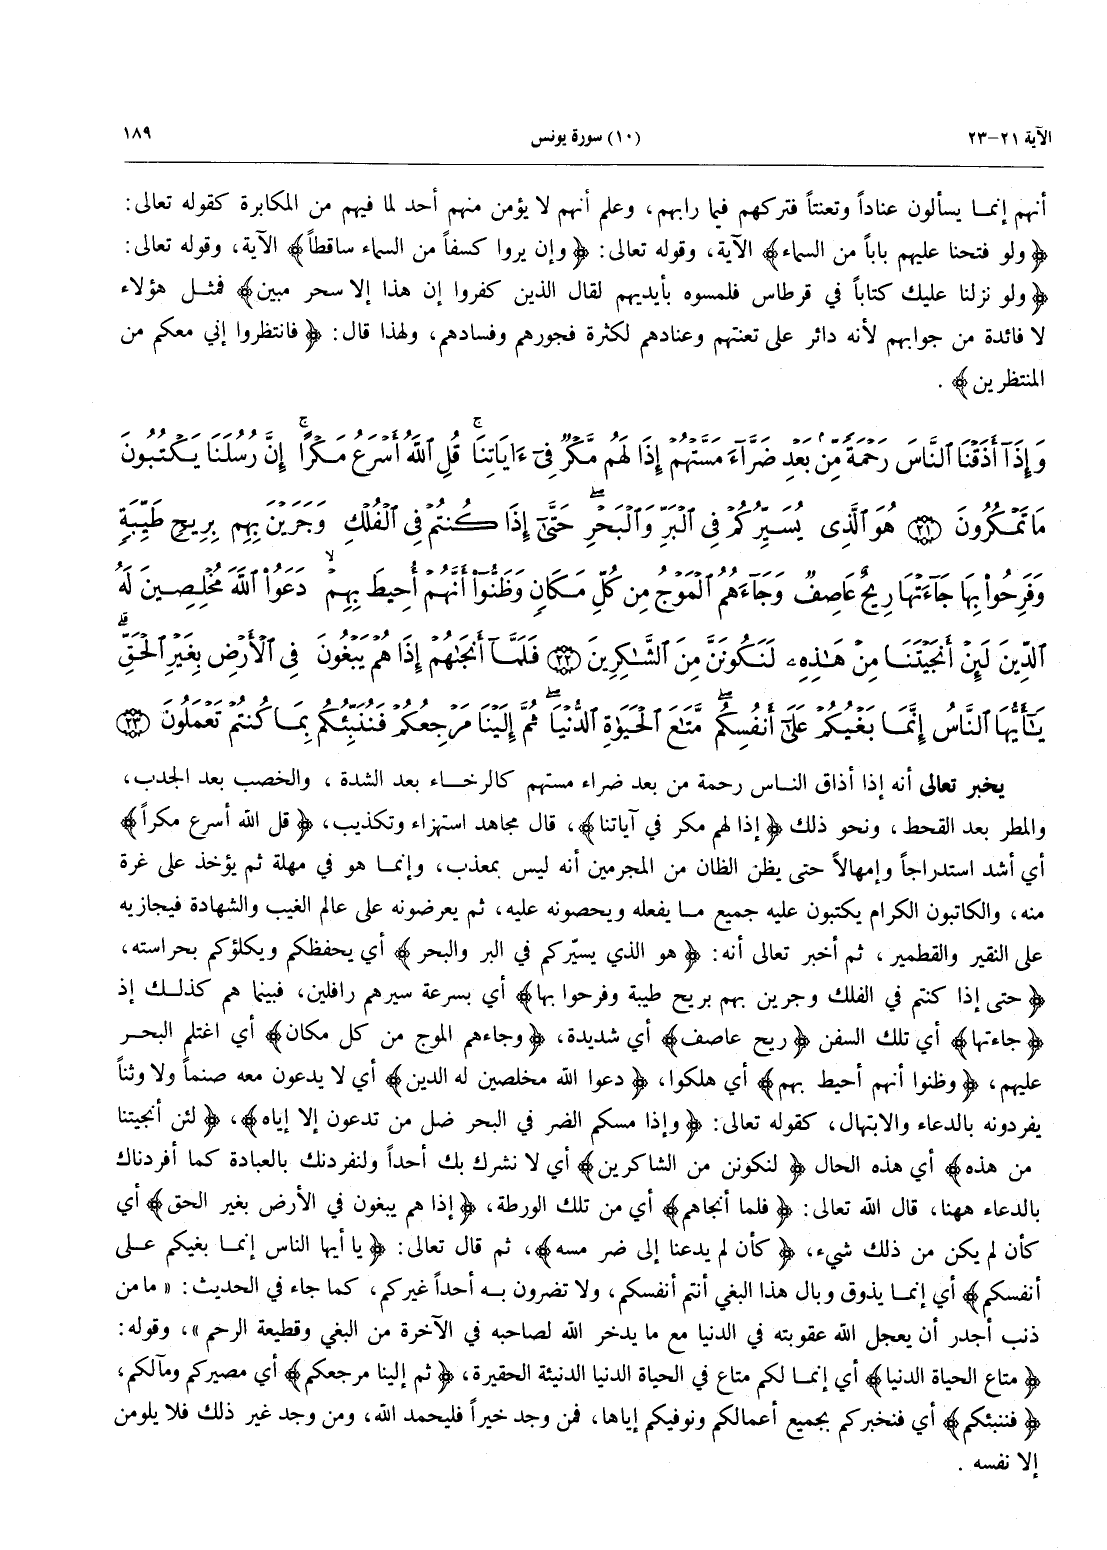 الآية ٢١-٢٣ (١٠) سورة يونس ١٨٩
أنهم إنما يسألون عناداً وتعنتاً فتركهم فيما رابهم، وعلم أنهم لا يؤمن منهم أحد لما فيهم من المكابرة كقوله تعالى:
﴿ولو فتحنا عليهم باباً من السماء﴾ الآية، وقوله تعالى: ﴿وإن يروا كسفاً من السماء ساقطاً﴾ الآية، وقوله تعالى:
﴿ولو نزلنا عليك كتاباً في قرطاس فلمسوه بأيديهم لقال الذين كفروا إن هذا إلا سحر مبين﴾ فمثل هؤلاء
لا فائدة من جوابهم لأنه دائر على تعنتهم وعنادهم لكثرة فجورهم وفسادهم، ولهذا قال: ﴿فانتظروا إني معكم من
المنتظرين﴾ .
وَإِذَآ أَذَقْنَا ٱلنَّاسَ رَحْمَةً مِّنۢ بَعْدِ ضَرَّآءَ مَسَّتْهُمْ إِذَا لَهُم مَّكْرٌ فِىٓ ءَايَاتِنَا ۚ قُلِ ٱللَّهُ أَسْرَعُ مَكْرًا ۚ إِنَّ رُسُلَنَا يَكْتُبُونَ
مَا تَمْكُرُونَ ﴿٢١﴾ هُوَ ٱلَّذِى يُسَيِّرُكُمْ فِى ٱلْبَرِّ وَٱلْبَحْرِ ۖ حَتَّىٰٓ إِذَا كُنتُمْ فِى ٱلْفُلْكِ وَجَرَيْنَ بِهِم بِرِيحٍ طَيِّبَةٍ
وَفَرِحُوا۟ بِهَا جَآءَتْهَا رِيحٌ عَاصِفٌ وَجَآءَهُمُ ٱلْمَوْجُ مِن كُلِّ مَكَانٍ وَظَنُّوٓا۟ أَنَّهُمْ أُحِيطَ بِهِمْ ۙ دَعَوُا۟ ٱللَّهَ مُخْلِصِينَ لَهُ
ٱلدِّينَ لَئِنْ أَنجَيْتَنَا مِنْ هَـٰذِهِۦ لَنَكُونَنَّ مِنَ ٱلشَّـٰكِرِينَ ﴿٢٢﴾ فَلَمَّآ أَنجَىٰهُمْ إِذَا هُمْ يَبْغُونَ فِى ٱلْأَرْضِ بِغَيْرِ ٱلْحَقِّ ۗ
يَـٰٓأَيُّهَا ٱلنَّاسُ إِنَّمَا بَغْيُكُمْ عَلَىٰٓ أَنفُسِكُم ۖ مَّتَـٰعَ ٱلْحَيَوٰةِ ٱلدُّنْيَا ۖ ثُمَّ إِلَيْنَا مَرْجِعُكُمْ فَنُنَبِّئُكُم بِمَا كُنتُمْ تَعْمَلُونَ ﴿٢٣﴾
يخبر تعالى أنه إذا أذاق الناس رحمة من بعد ضراء مستهم كالرخاء بعد الشدة ، والخصب بعد الجدب،
والمطر بعد القحط، ونحو ذلك ﴿إذا لهم مكر في آياتنا﴾، قال مجاهد استهزاء وتكذيب، ﴿قل الله أسرع مكراً﴾
أي أشد استدراجاً وإمهالاً حتى يظن الظان من المجرمين أنه ليس بمعذب، وإنما هو في مهلة ثم يؤخذ على غرة
منه، والكاتبون الكرام يكتبون عليه جميع ما يفعله ويحصونه عليه، ثم يعرضونه على عالم الغيب والشهادة فيجازيه
على النقير والقطمير ، ثم أخبر تعالى أنه: ﴿هو الذي يسيّركم في البر والبحر﴾ أي يحفظكم ويكلؤكم بحراسته،
﴿حتى إذا كنتم في الفلك وجرين بهم بريح طيبة وفرحوا بها﴾ أي بسرعة سيرهم رافلين، فبينما هم كذلك إذ
﴿جاءتها﴾ أي تلك السفن ﴿ريح عاصف﴾ أي شديدة، ﴿وجاءهم الموج من كل مكان﴾ أي اغتلم البحر
عليهم، ﴿وظنوا أنهم أحيط بهم﴾ أي هلكوا، ﴿دعوا الله مخلصين له الدين﴾ أي لا يدعون معه صنماً ولا وثناً
يفردونه بالدعاء والابتهال، كقوله تعالى: ﴿وإذا مسكم الضر في البحر ضل من تدعون إلا إياه﴾، ﴿لئن أنجيتنا
من هذه﴾ أي هذه الحال ﴿لنكونن من الشاكرين﴾ أي لا نشرك بك أحداً ولنفردنك بالعبادة كما أفردناك
بالدعاء ههنا، قال الله تعالى: ﴿فلما أنجاهم﴾ أي من تلك الورطة، ﴿إذا هم يبغون في الأرض بغير الحق﴾ أي
كأن لم يكن من ذلك شيء، ﴿كأن لم يدعنا إلى ضر مسه﴾، ثم قال تعالى: ﴿يا أيها الناس إنما بغيكم على
أنفسكم﴾ أي إنما يذوق وبال هذا البغي أنتم أنفسكم، ولا تضرون به أحداً غيركم، كما جاء في الحديث: « ما من
ذنب أجدر أن يعجل الله عقوبته في الدنيا مع ما يدخر الله لصاحبه في الآخرة من البغي وقطيعة الرحم »، وقوله:
﴿متاع الحياة الدنيا﴾ أي إنما لكم متاع في الحياة الدنيا الدنيئة الحقيرة، ﴿ثم إلينا مرجعكم﴾ أي مصيركم ومآلكم،
﴿فننبئكم﴾ أي فنخبركم بجميع أعمالكم ونوفيكم إياها، فمن وجد خيراً فليحمد الله، ومن وجد غير ذلك فلا يلومن
إلا نفسه .